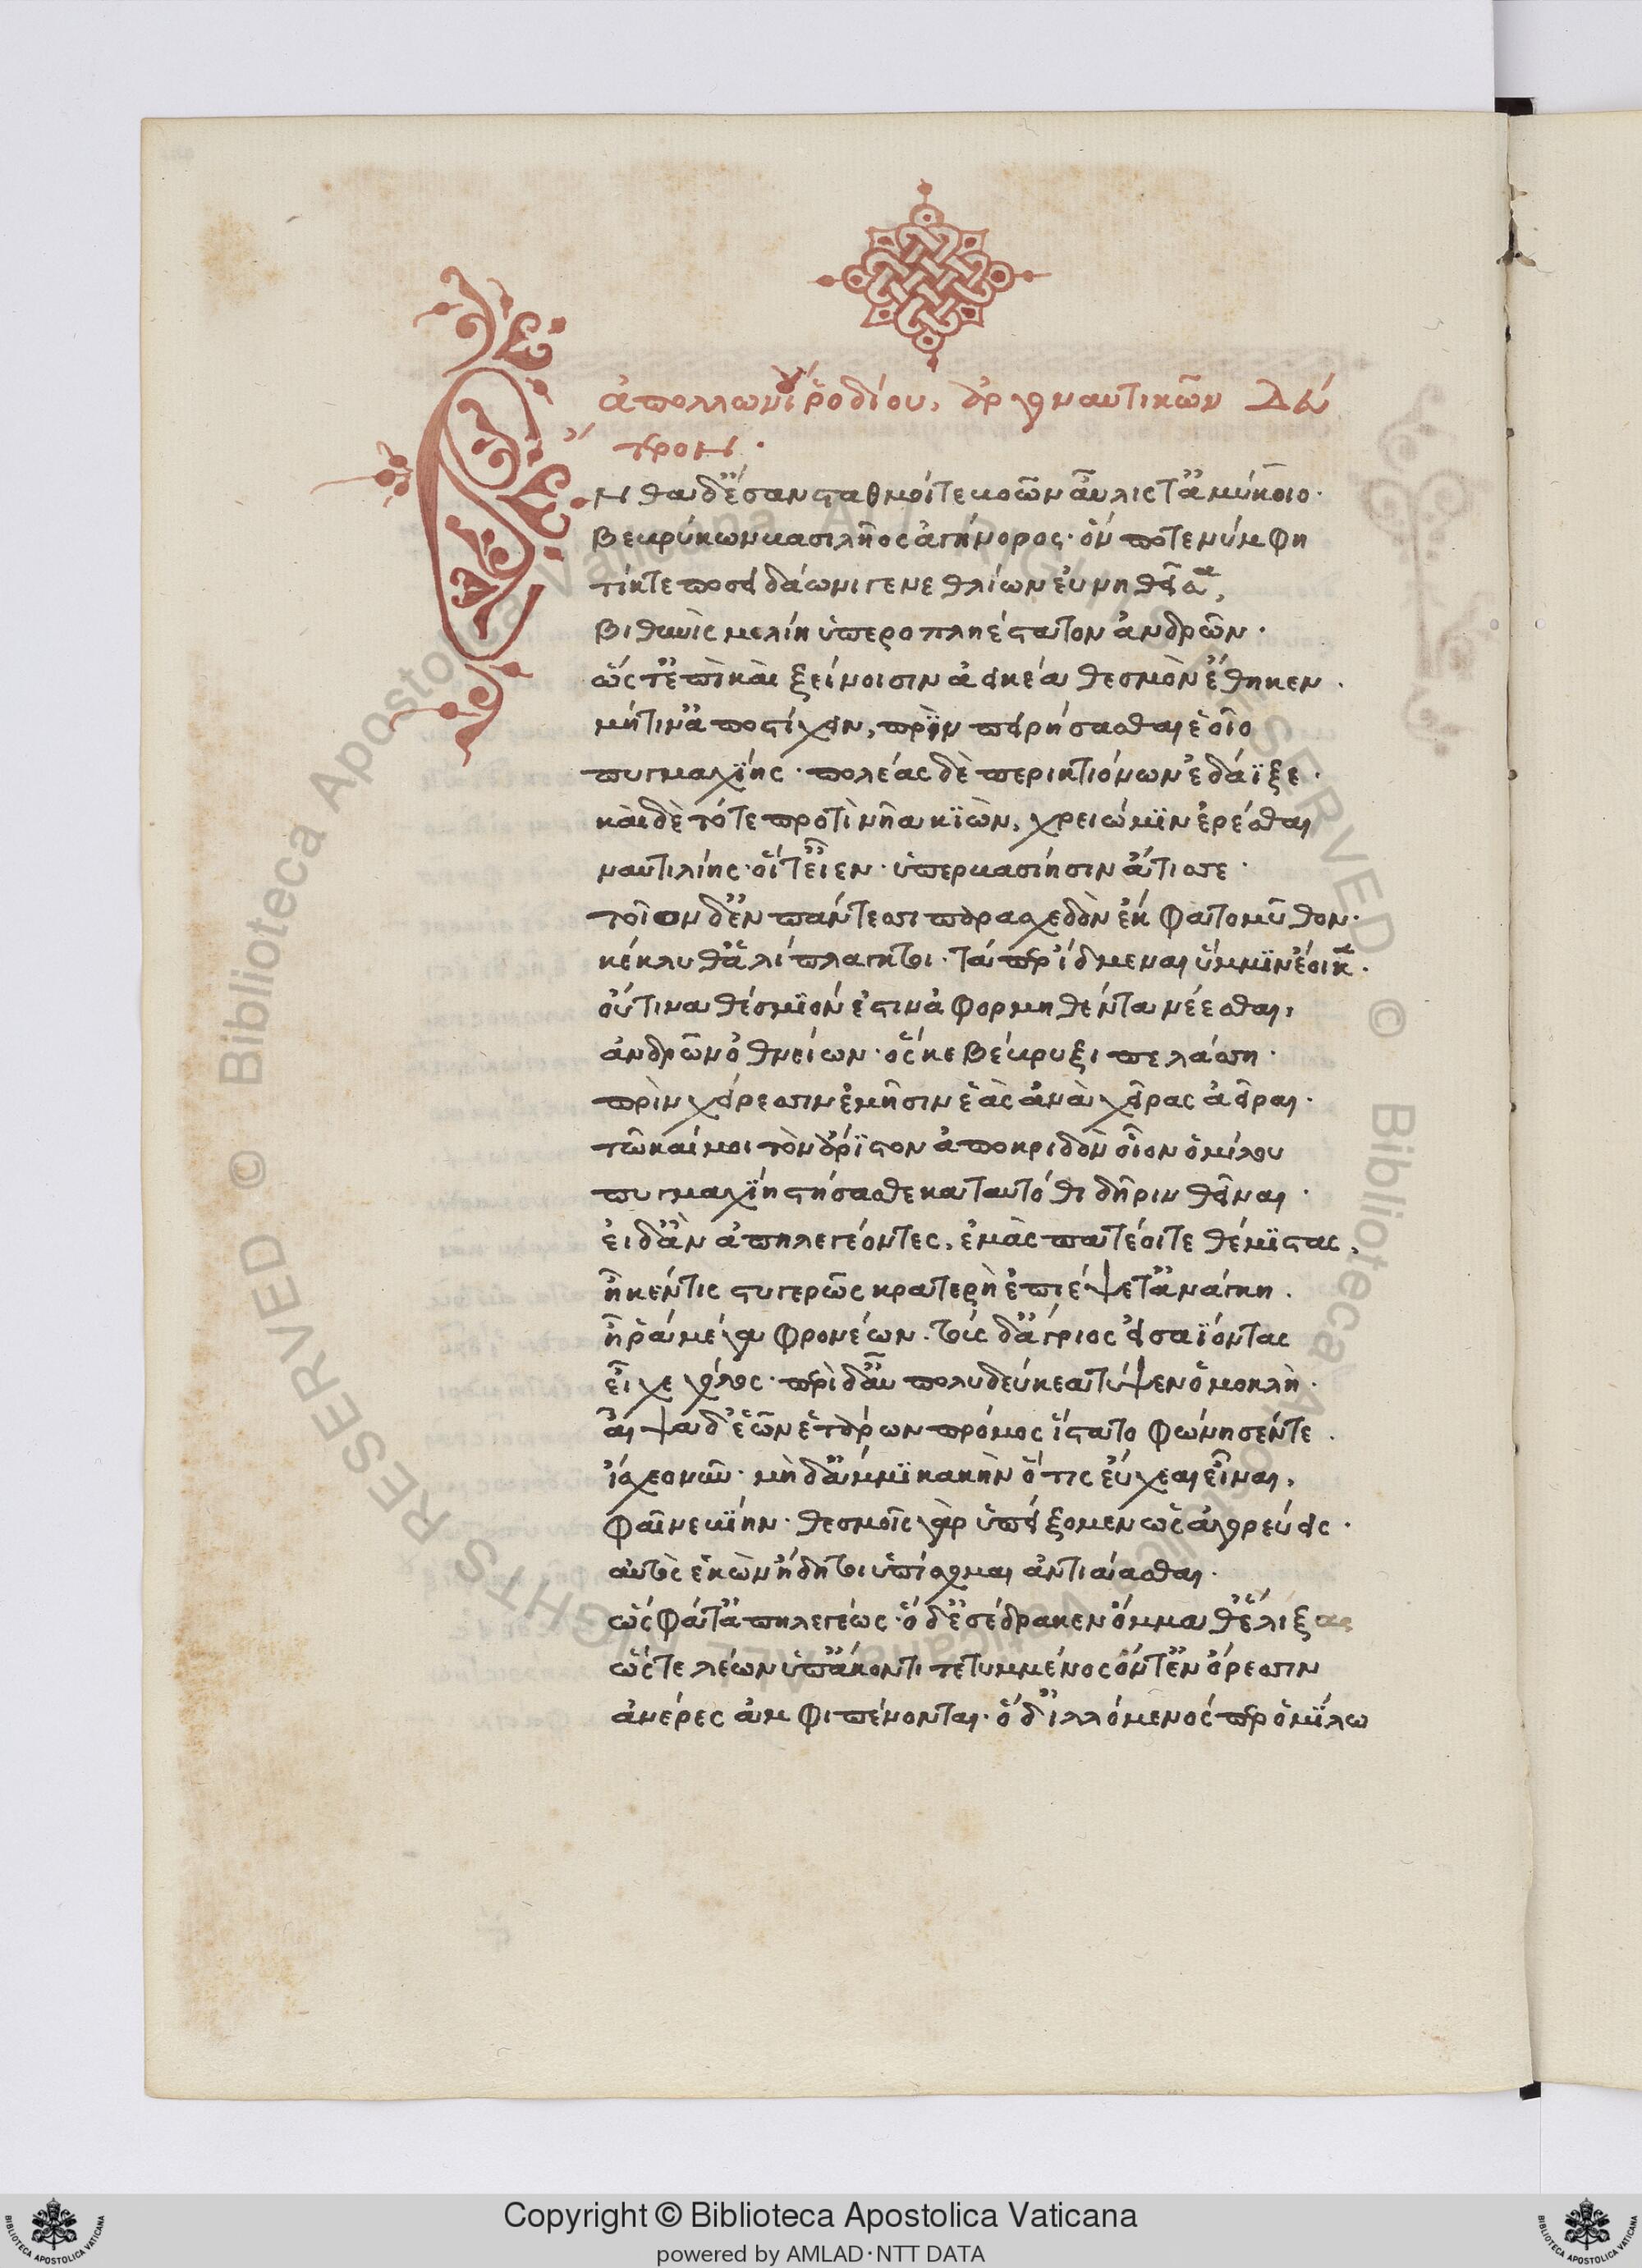 ἀπολλωνίου ῥοδίου, ἀργοναυτικῶν δεύ
τερον ·
Ἔνθα δ' ἔσαν σταθμοίτε βοῶν αὖλίς τ' ἀμύκοιο ·
βεβρύκων βασιλῆος ἀγήνορος · ὅν ποτε νύμφη
τίκτε ποσειδάωνι γενεθλίων εὐνηθεῖσα,
βιθυνὶς μελίη ὑπεροπληέστατον ἀνδρῶν ·
ὥς τ' ἐπὶ καὶ ξείνοισιν ἀεικέα θεσμὸν ἔθηκεν ·
μήτιν' ἀποστίχειν, πρὶν πειρήσασθαι ἑοῖο
πυγμαχίης · πολέας δὲ περικτιόνων ἐδάϊξε ·
καὶ δὲ τότε προτὶ νῆα κιὼν, χρειώ μιν ἐρέσθαι
ναυτιλίης · οἵ τ' εἶεν · ὑπερβασίησιν ἄτισσε ·
τοῖον δ' ἐν πάντεσσι παρασχεδὸν ἔκφατο μῦθον ·
κέκλυθ' ἁλίπλαγκτοι · τάπερ ἴδμεναι ὔμμιν ἔοικε ·
οὔτινα θέσμιόν ἐστιν ἀφορμηθέντα νέεσθαι,
ἀνδρῶν ὀθνείων · ὅς κε βέβρυξι πελάσση ·
πρὶν χείρεσσιν ἐμῆσιν ἑὰς ἀνὰ χεῖρας ἀεῖραι ·
τῶ καί μοι τὸν ἄριστον ἀποκριδὸν οἶον ὁμίλου
πυγμαχίη στήσασθε καταυτόθι δῆριν θεῖναι ·
εἰ δ' ἂν ἀπηλεγέοντες, ἐμὰς πατέοιτε θέμιστας,
ἦ κέν τις στυγερῶς κρατερὴ ἐπιέψετ' ἀνάγκη ·
ἦ ῥα μέγα φρονέων · τοὺς δ' ἄγριος εἰσαΐοντας
εἷχε χόλος · περὶ δ' αὖ πολυδεύκεα τύψεν ὁμοκλὴ ·
αἶψα δ' ἑῶν ἑτάρων πρόμος ἵστατο φώνησέν τε ·
ἴσχεο νῦν · μὴ δ' ἄμμι κακὴν ὅτις εὔχεαι εἶναι,
φαῖνε βίην · θεσμοῖς γὰρ ὑπείξομεν ὡς ἀγορεύεις ·
αὐτὸς ἑκὼν ἤδη τοι ὑπίσχομαι ἀντιάασθαι ·
ὣς φάτ' ἀπηλεγέως · ὁ δ' ἐσέδρακεν ὄμμαθ' ἑλίξας
ὥς τε λέων ὑπ' ἄκοντι τετυμμένος ὅν τ' ἐν ὄρεσσιν
ἀνέρες ἀμφιπένονται · ὁ δ' ἰλλόμενός περ ὁμίλω
Copyright © Biblioteca Apostolica Vaticana
powered by AMLAD·NTT DATA
© Biblioteca Apostolica Vaticana ALL RIGHTS RESERVED © Biblioteca Apostolica Vaticana ALL RIGHTS RESERVED